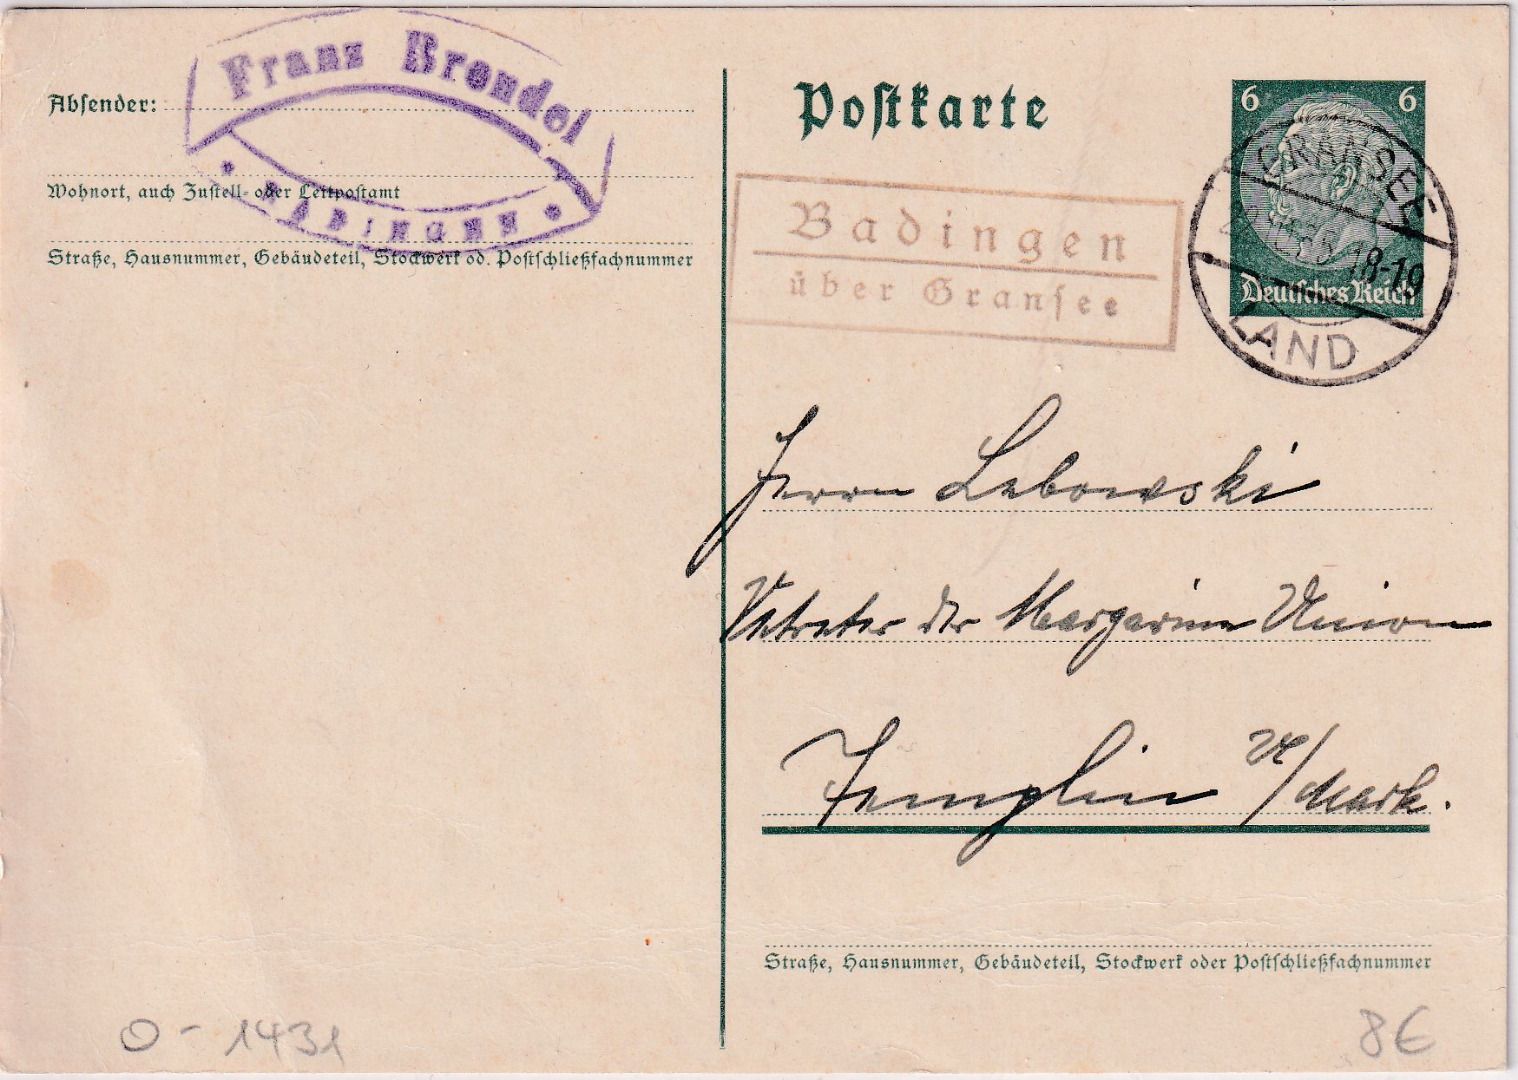 Franz Brendel
Absender:
Wohnort, auch Zustell- oder Leitpostamt
BADINGEN
Straße, Hausnummer, Gebäudeteil, Stockwerk od. Postschließfachnummer
Postkarte
6 6
Deutsches Reich
GRANSEE
18-19
LAND
Badingen
über Gransee
Herrn Lebowski
Vertreter der Margarine Union
Templin /Mark.
Straße, Hausnummer, Gebäudeteil, Stockwerk oder Postschließfachnummer
O - 1431
8€